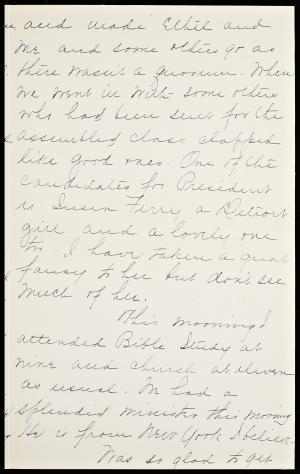 and made Ethel and
me and some others go as
there wasn't a quorum. When
we went in with some others
who had been sent for the
assembled class clapped
like good ones. One of the
candidates for President
is Susan Terry a Detroit
girl and a lovely one
too. I have taken a great
fancy to her but don't see
much of her.
This morning I
attended Bible Study at
nine and church at eleven
as usual. We had a
splendid minister this morning
He is from New York I believe.
Was so glad to get